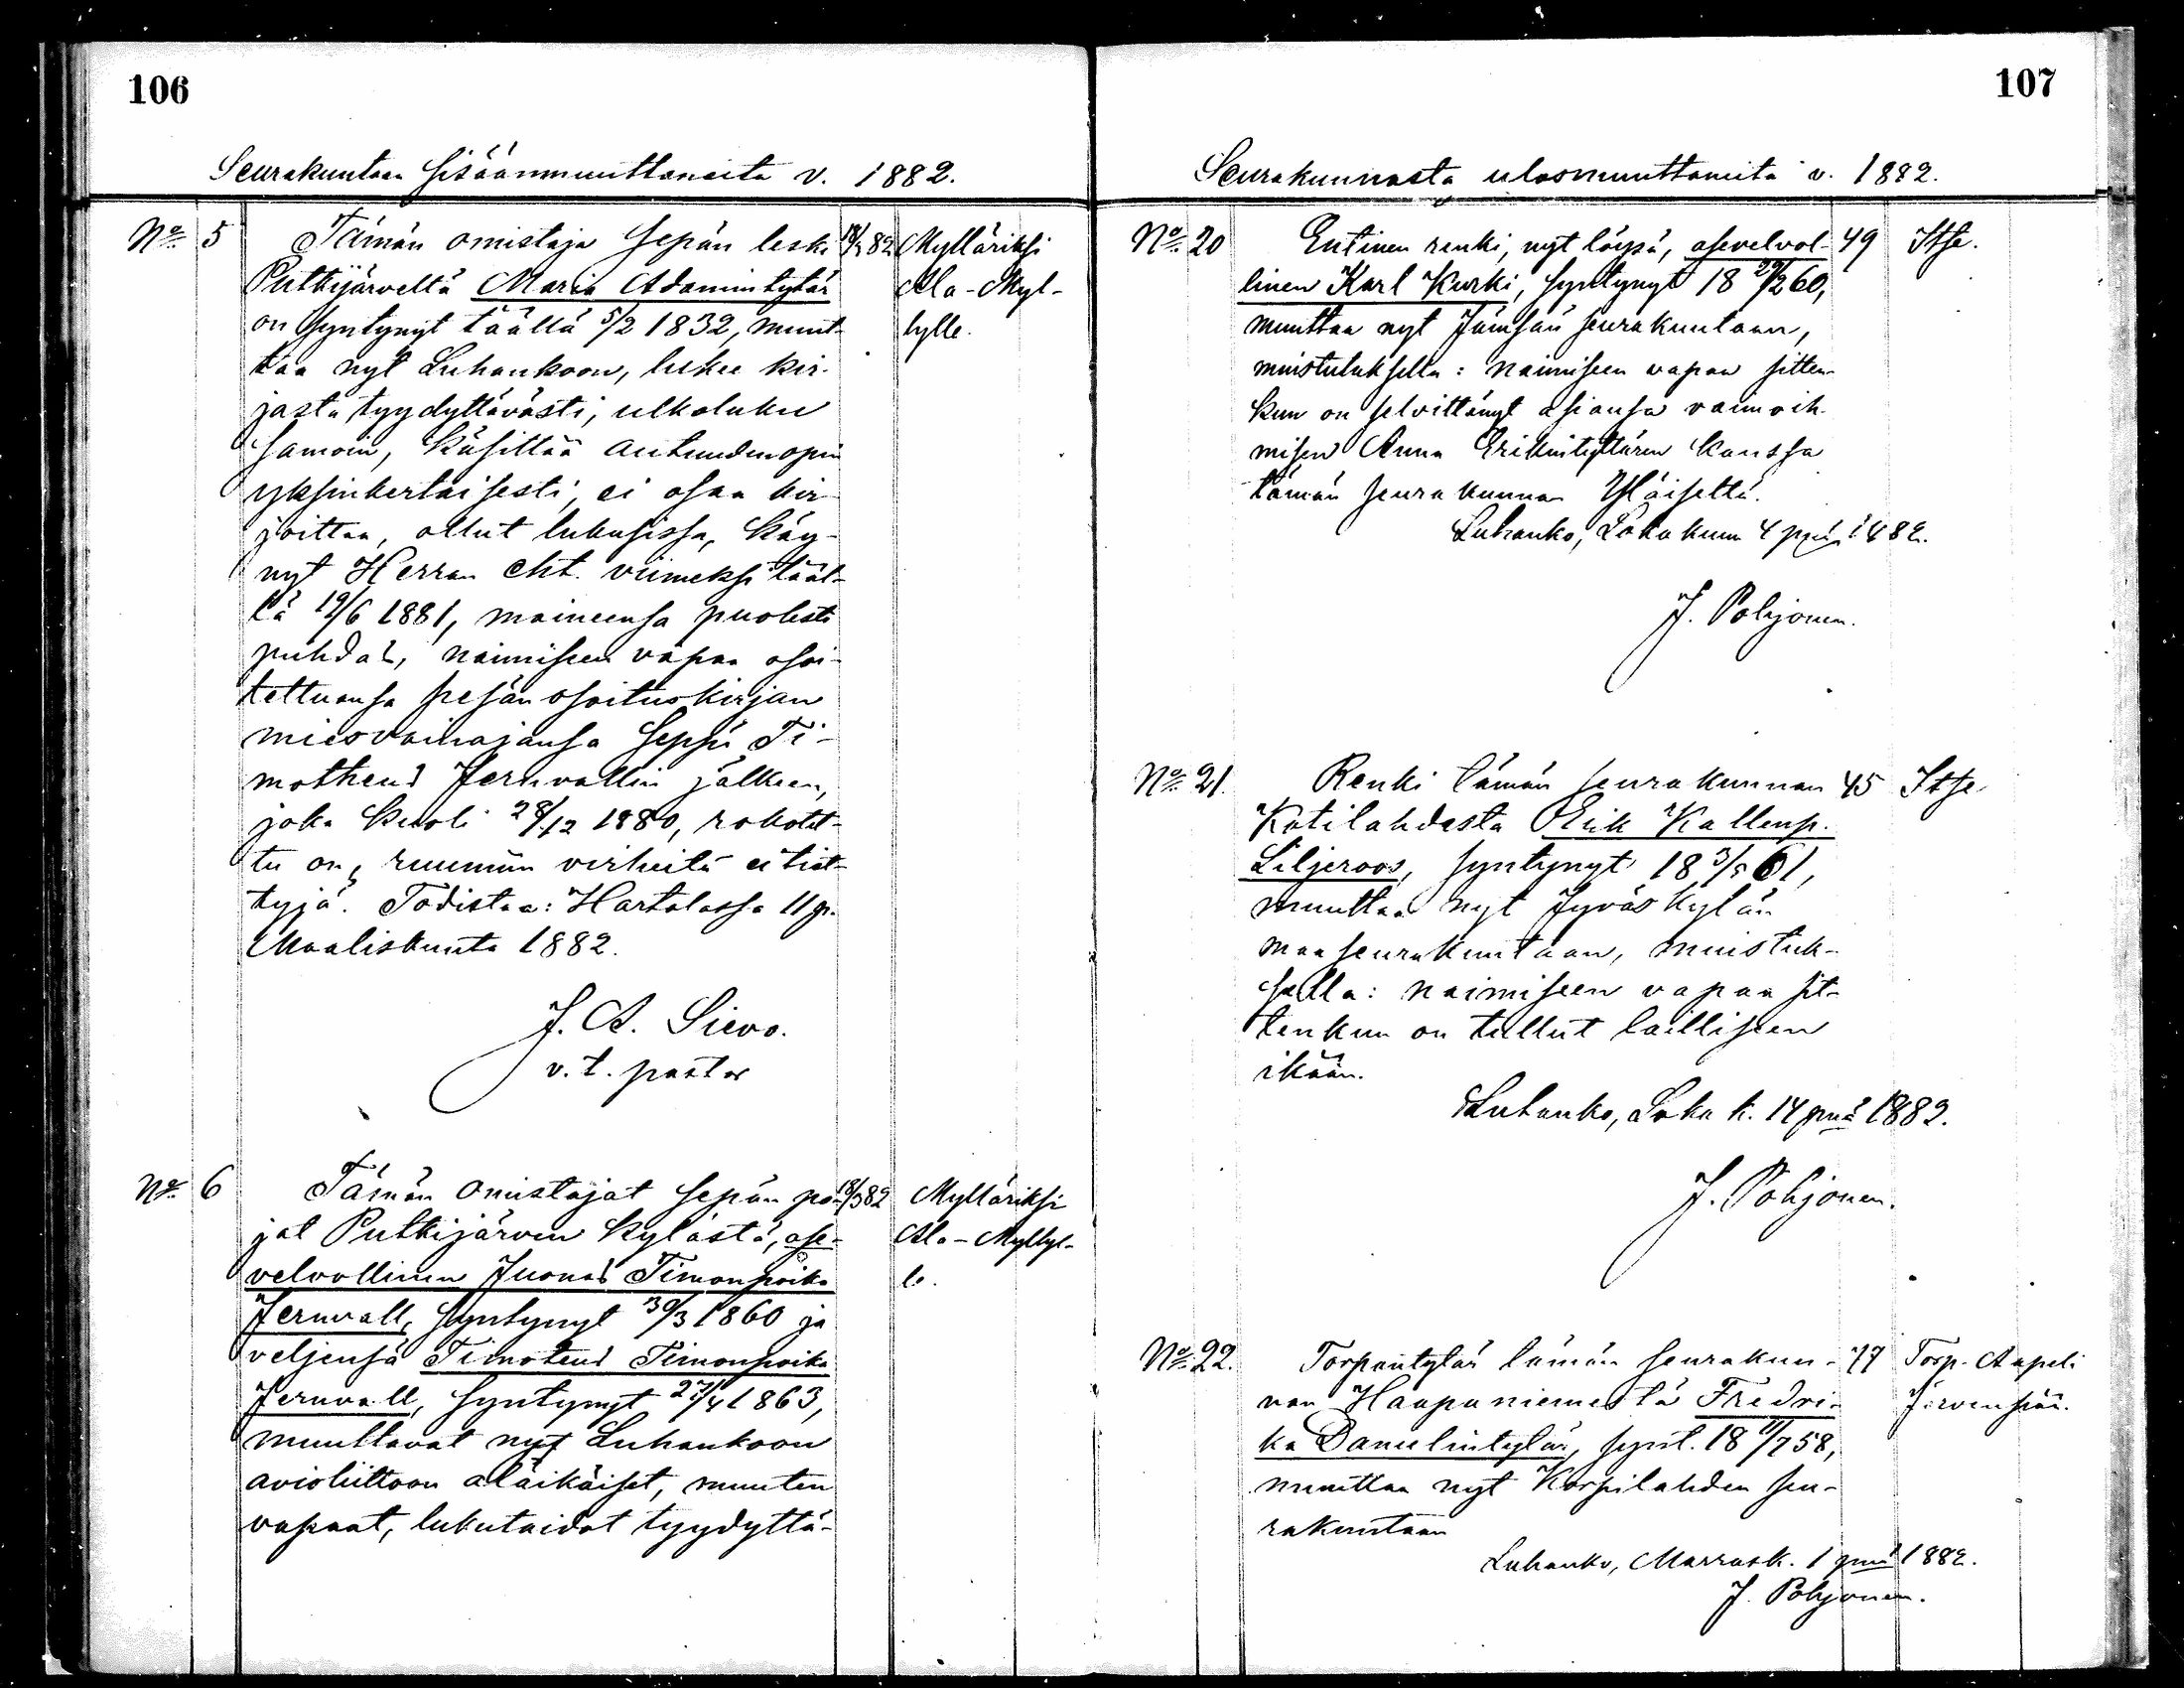 106
Seurakuntaan sisäänmuuttaneita v. 1882.
No 5 Tämän omistaja sepän leski 18/3 82 Mylläriksi
Putkijärveltä Maria Adamintytär Ala-Myl-
on syntynyt täällä 5/2 1832, muut- lylle.
taa nyt Luhankoon, lukee kir-
jasta tyydyttävästi, ulkoluku
samoin, käsittää autuudenopin
yksinkertaisesti, ei osaa kir-
joittaa, ollut lukusissa, käy-
nyt Herran eht. viimeksi tääl-
lä 19/6 1881, maineensa puolesta
puhdas, naimiseen vapaa osoi-
tettuansa pesänosoituskirjan
miesvainajansa seppä Ti-
motheus Jernvallin jälkeen,
joka kuoli 28/12 1880, rokotet-
tu on, ruumiin virheitä ei tiet-
tyjä. Todistaa: Hartolassa 11 p.
Maaliskuuta 1882.
J. A. Sievo.
v. t. pastor
No 6 Tämän omistajat sepän po- 18/3 82 Mylläriksi
jat Putkijärven kylästä, ase- Ala-Myllyl-
velvollinen Juonas Timonpoika le.
Jernvall, syntynyt 30/3 1860 ja
veljensä Timoteus Timonpoika
Jernvall, syntynyt 27/4 1863,
muuttavat nyt Luhankoon
avioliittoon aläikäiset, muuten
vapaat, lukutaidot tyydyttä-
107
Seurakunnasta ulosmuuttaneita v. 1882.
No 20 Entinen renki, nyt löysä, asevelvol- 49 Itse.
linen Karl Kurki, syntynyt 18 29/2 60,
muuttaa nyt Jämsän seurakuntaan,
muistutuksella: naimiseen vapaa sitten
kun on selvittänyt asiansa vaimoih-
misen Anna Erikintyttären kanssa
tämän seurakunnan Yläiseltä.
Luhanko, Lokakuun 4 pnä 1882.
J. Pohjonen.
No 21. Renki tämän seurakunnan 45 Itse
Kotilahdesta Erik Kallenp.
Liljeroos, syntynyt 18 3/5 61,
muuttaa nyt Jyväskylän
maaseurakuntaan, muistuk-
sella: naimiseen vapaa sit-
tenkun on tullut lailliseen
ikään.
Luhanko, Loka k. 14 pnä 1882.
J. Pohjonen.
No 22. Torparitytär tämän seurakun- 77 Torp. Aapeli
nan Haapaniemestä Fredri- Järvenpää.
ka Danielintytär, synt. 18 11/7 58,
muuttaa nyt Korpilahden seu-
rakuntaan
Luhanko, Marrask. 1 pnä 1882.
J. Pohjonen.